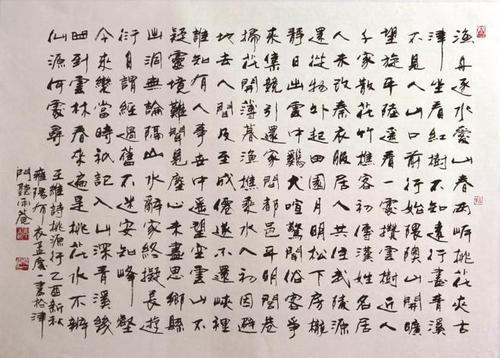 漁舟逐水愛山春兩岸桃花夾古
津坐看紅樹不知遠行盡青溪
不見人山口潛行始隈隩山開曠
望旋平陸遙看一處攢雲樹近入
千家散花竹樵客初傳漢姓名居
人未改秦衣服居人共住武陵源
還從物外起田園月明松下房櫳
靜日出雲中雞犬喧驚聞俗客爭
來集競引還家問都邑平明閭巷
掃花開薄暮漁樵乘水入初因避
地去人間及至成僊遂不還峽裡
誰知有人事世中遙望空雲山不
疑靈境難聞見塵心未盡思鄉縣
出洞無論隔山水辭家終擬長遊
衍自謂經過舊不迷安知峰壑
今來變當時秖記入山深青溪幾
曲到雲林春來遍是桃花水不辨
仙源何處尋
王維詩桃源行乙酉新秋
雍陽布衣孟慶一書於津
門聽雨菴